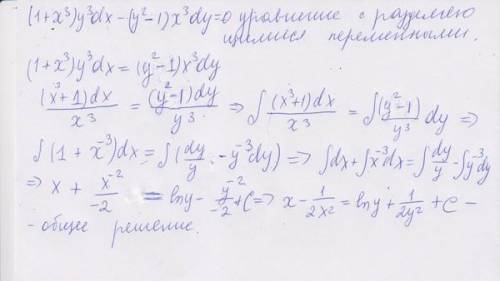 (1+x³)y³dx-(y²-1)x³dy=0 уравнение с разделяю
щимися переменными.
(1+x³)y³dx=(y²-1)x³dy
(x³+1)dx/x³ = (y²-1)dy/y³ ⇒ ∫(x³+1)dx/x³ = ∫(y²-1)/y³ dy ⇒
∫(1+x⁻³)dx=∫(dy/y - y⁻³dy) ⇒ ∫dx+∫x⁻³dx=∫dy/y-∫y⁻³dy
⇒ x + x⁻²/-2 = lny - y⁻²/-2 +C ⇒ x - 1/2x² = lny + 1/2y² + C -
- общее решение.